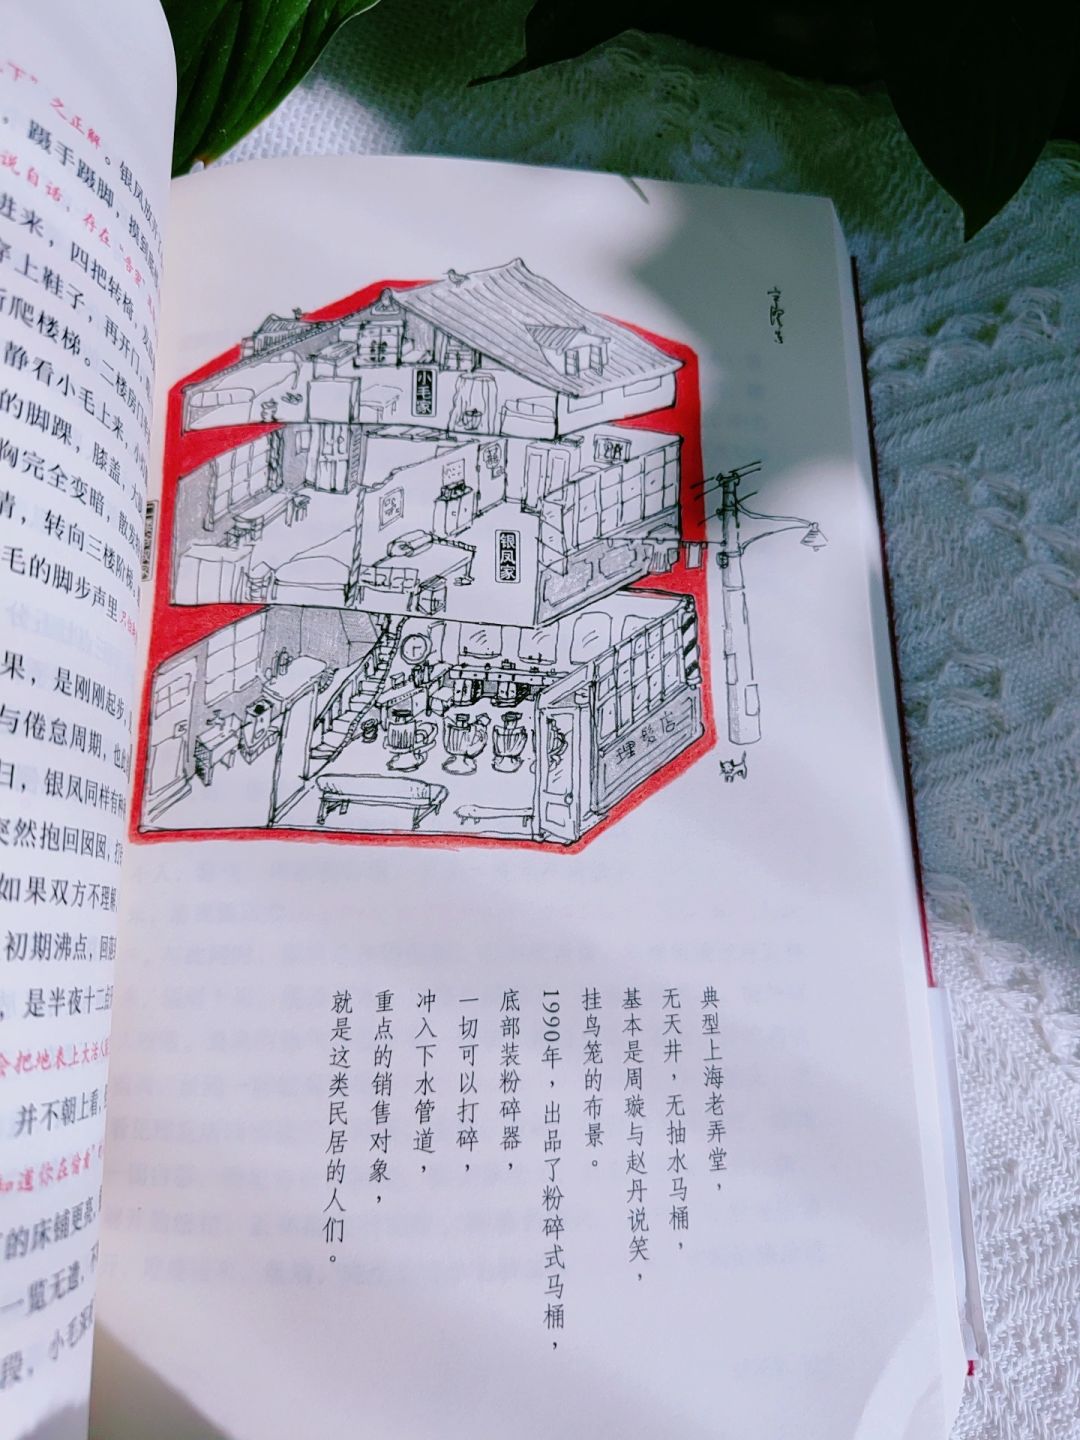 下”之正解
。银凤
，蹑手蹑脚，摸到
说自话，存在“
进来，四把转椅，
穿上鞋子，再开门，
爬楼梯。二楼房门
静看小毛上来，小
的脚踝，膝盖，大
胸完全变暗，散发
情，转向三楼阶梯，
毛的脚步声里
果，是刚刚起步，
与倦怠周期，也
日，银凤同样有
突然抱回囡囡，
如果双方不理解
初期沸点，回
，是半夜十二点
会把地表上大活人
并不朝上看，
知道你在偷
的床铺更亮，
一览无遗，不
段，小毛
小毛家
银凤家
理髮店
典型上海老弄堂，
无天井，无抽水马桶，
基本是周璇与赵丹说笑，
挂鸟笼的布景。
1990年，出品了粉碎式马桶，
底部装粉碎器，
一切可以打碎，
冲入下水管道，
重点的销售对象，
就是这类民居的人们。